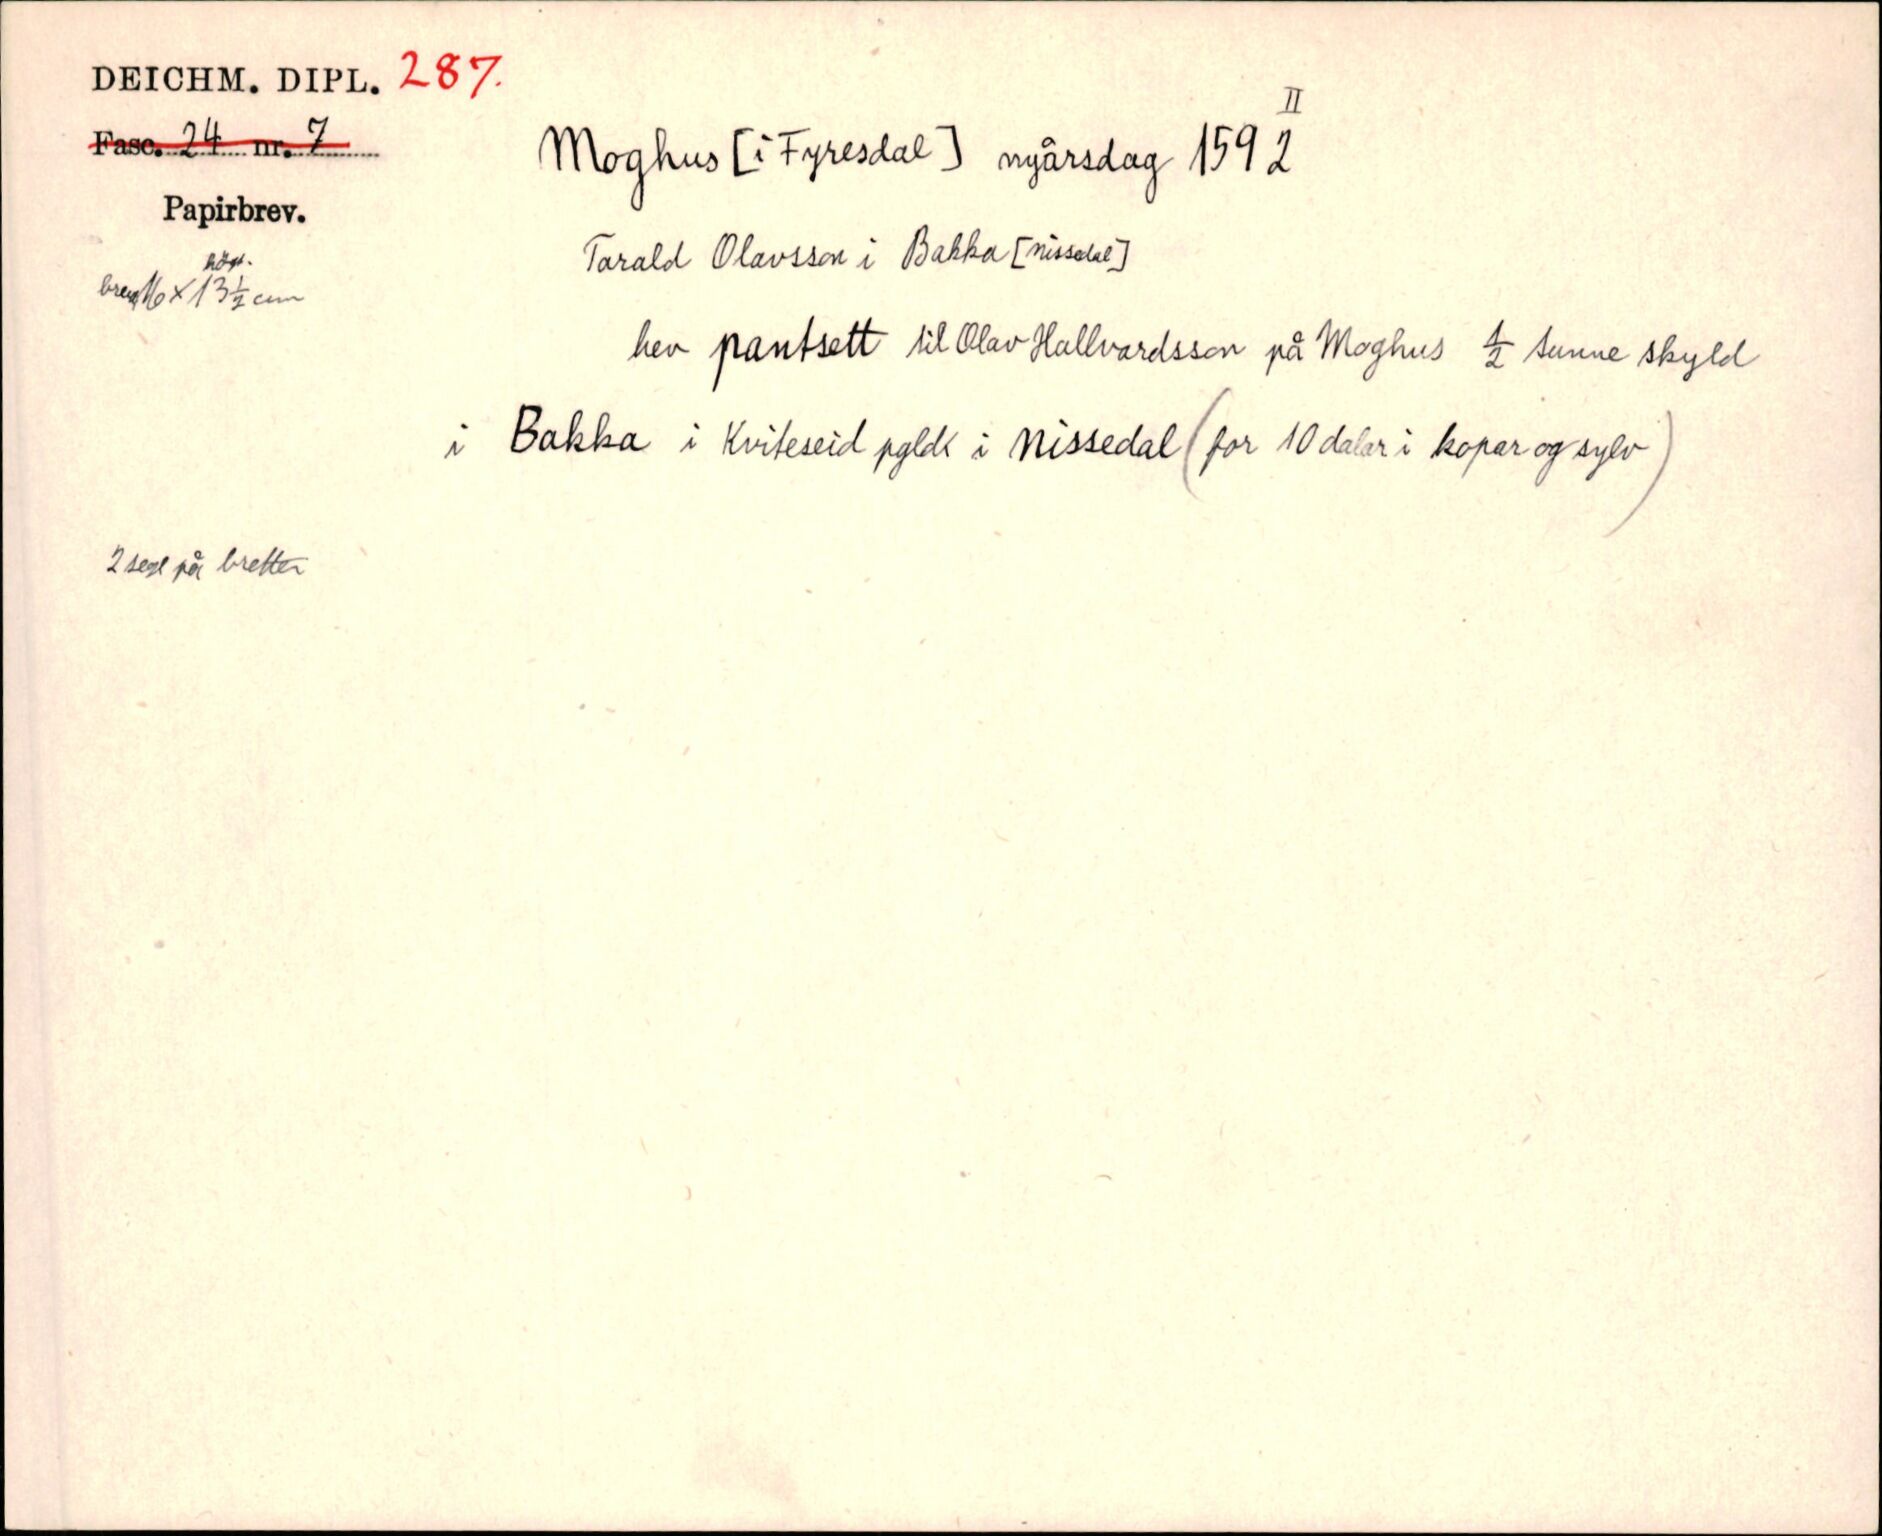 DEICHM. DIPL. 287.
Fasc. 24 nr. 7
Papirbrev.
høgd.
breidd 16 × 13 ½ cm
II
Moghus [i Fyresdal] nyårsdag 1592
Tarald Olavsson i Bakka [Nissedal]
hev pantsett til Olav Hallvardsson på Moghus ½ tunne skyld
i Bakka i Kviteseid pgldk i Nissedal (for 10 dalar i kopar og sylv)
2 segl på bretten